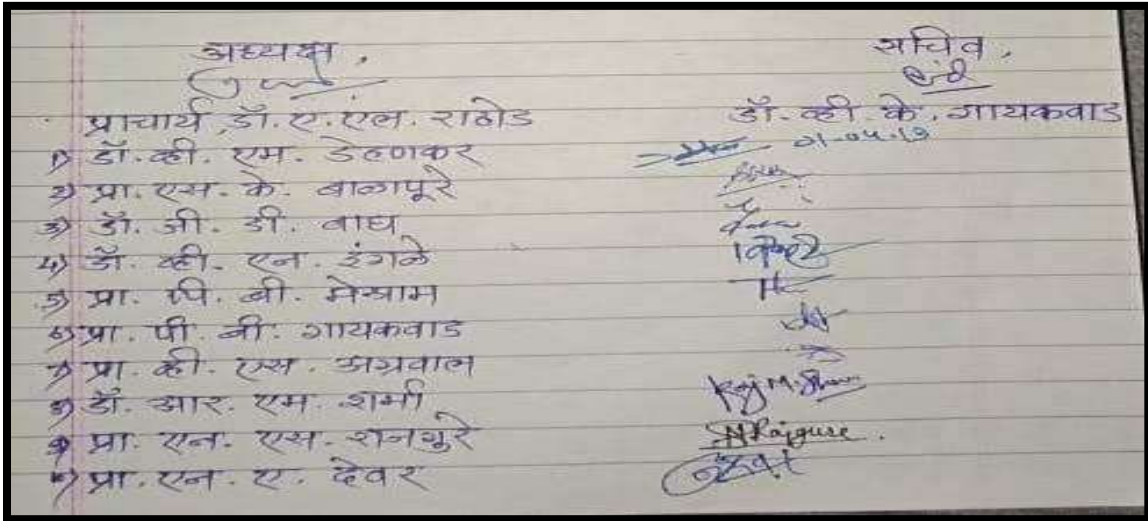 अध्यक्ष. सचिव.
प्राचार्य डॉ. ए. एल. राठोड डॉ. व्ही. के. गायकवाड
१) डॉ. व्ही. एम. डेहणकर
२) प्रा. एस. के. बाळापूरे
३) डॉ. जी. डी. वाघ
४) डॉ. व्ही. एन. इंगळे
५) प्रा. पि. बी. मेश्राम
६) प्रा. पी. बी. गायकवाड
७) प्रा. व्ही. एस. अग्रवाल
८) डॉ. आर. एम. शर्मा
९) प्रा. एन. एस. राजगुरे NRajgure.
१०) प्रा. एन. ए. देवर